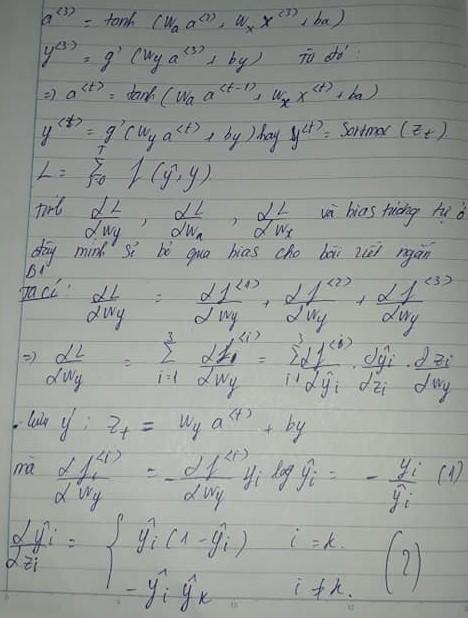 a<3> = tanh (Wa a<2>, Wx x<3> + ba)
y<3> = g' (Wy a<3> + by) Từ đó:
=> a<t> = tanh (Wa a<t-1>, Wx x<t> + ba)
y<t> = g' (Wy a<t> + by) hay y<t> = Softmax (Zt)
L = T Σ t=0 f (ŷ, y)
tính dL/dWy , dL/dWa , dL/dWx và bias tương tự ở
đây mình sẽ bỏ qua bias cho bài viết ngắn
B1
Ta có: dL/dWy = df<1>/dWy + df<2>/dWy + df<3>/dWy
=> dL/dWy = 3 Σ i=1 df<i>/dWy = 3 Σ i=1 df<i>/dŷi . dŷi/dzi . dzi/dWy
. Lưu ý: Zt = Wy a<t> + by
mà df<i>/dWy = - df<i>/dWy yi log ŷi = - yi/ŷi (1)
dŷi/dzi = { ŷi (1 - ŷi) i = k.
- ŷi ŷk i ≠ k. (2)